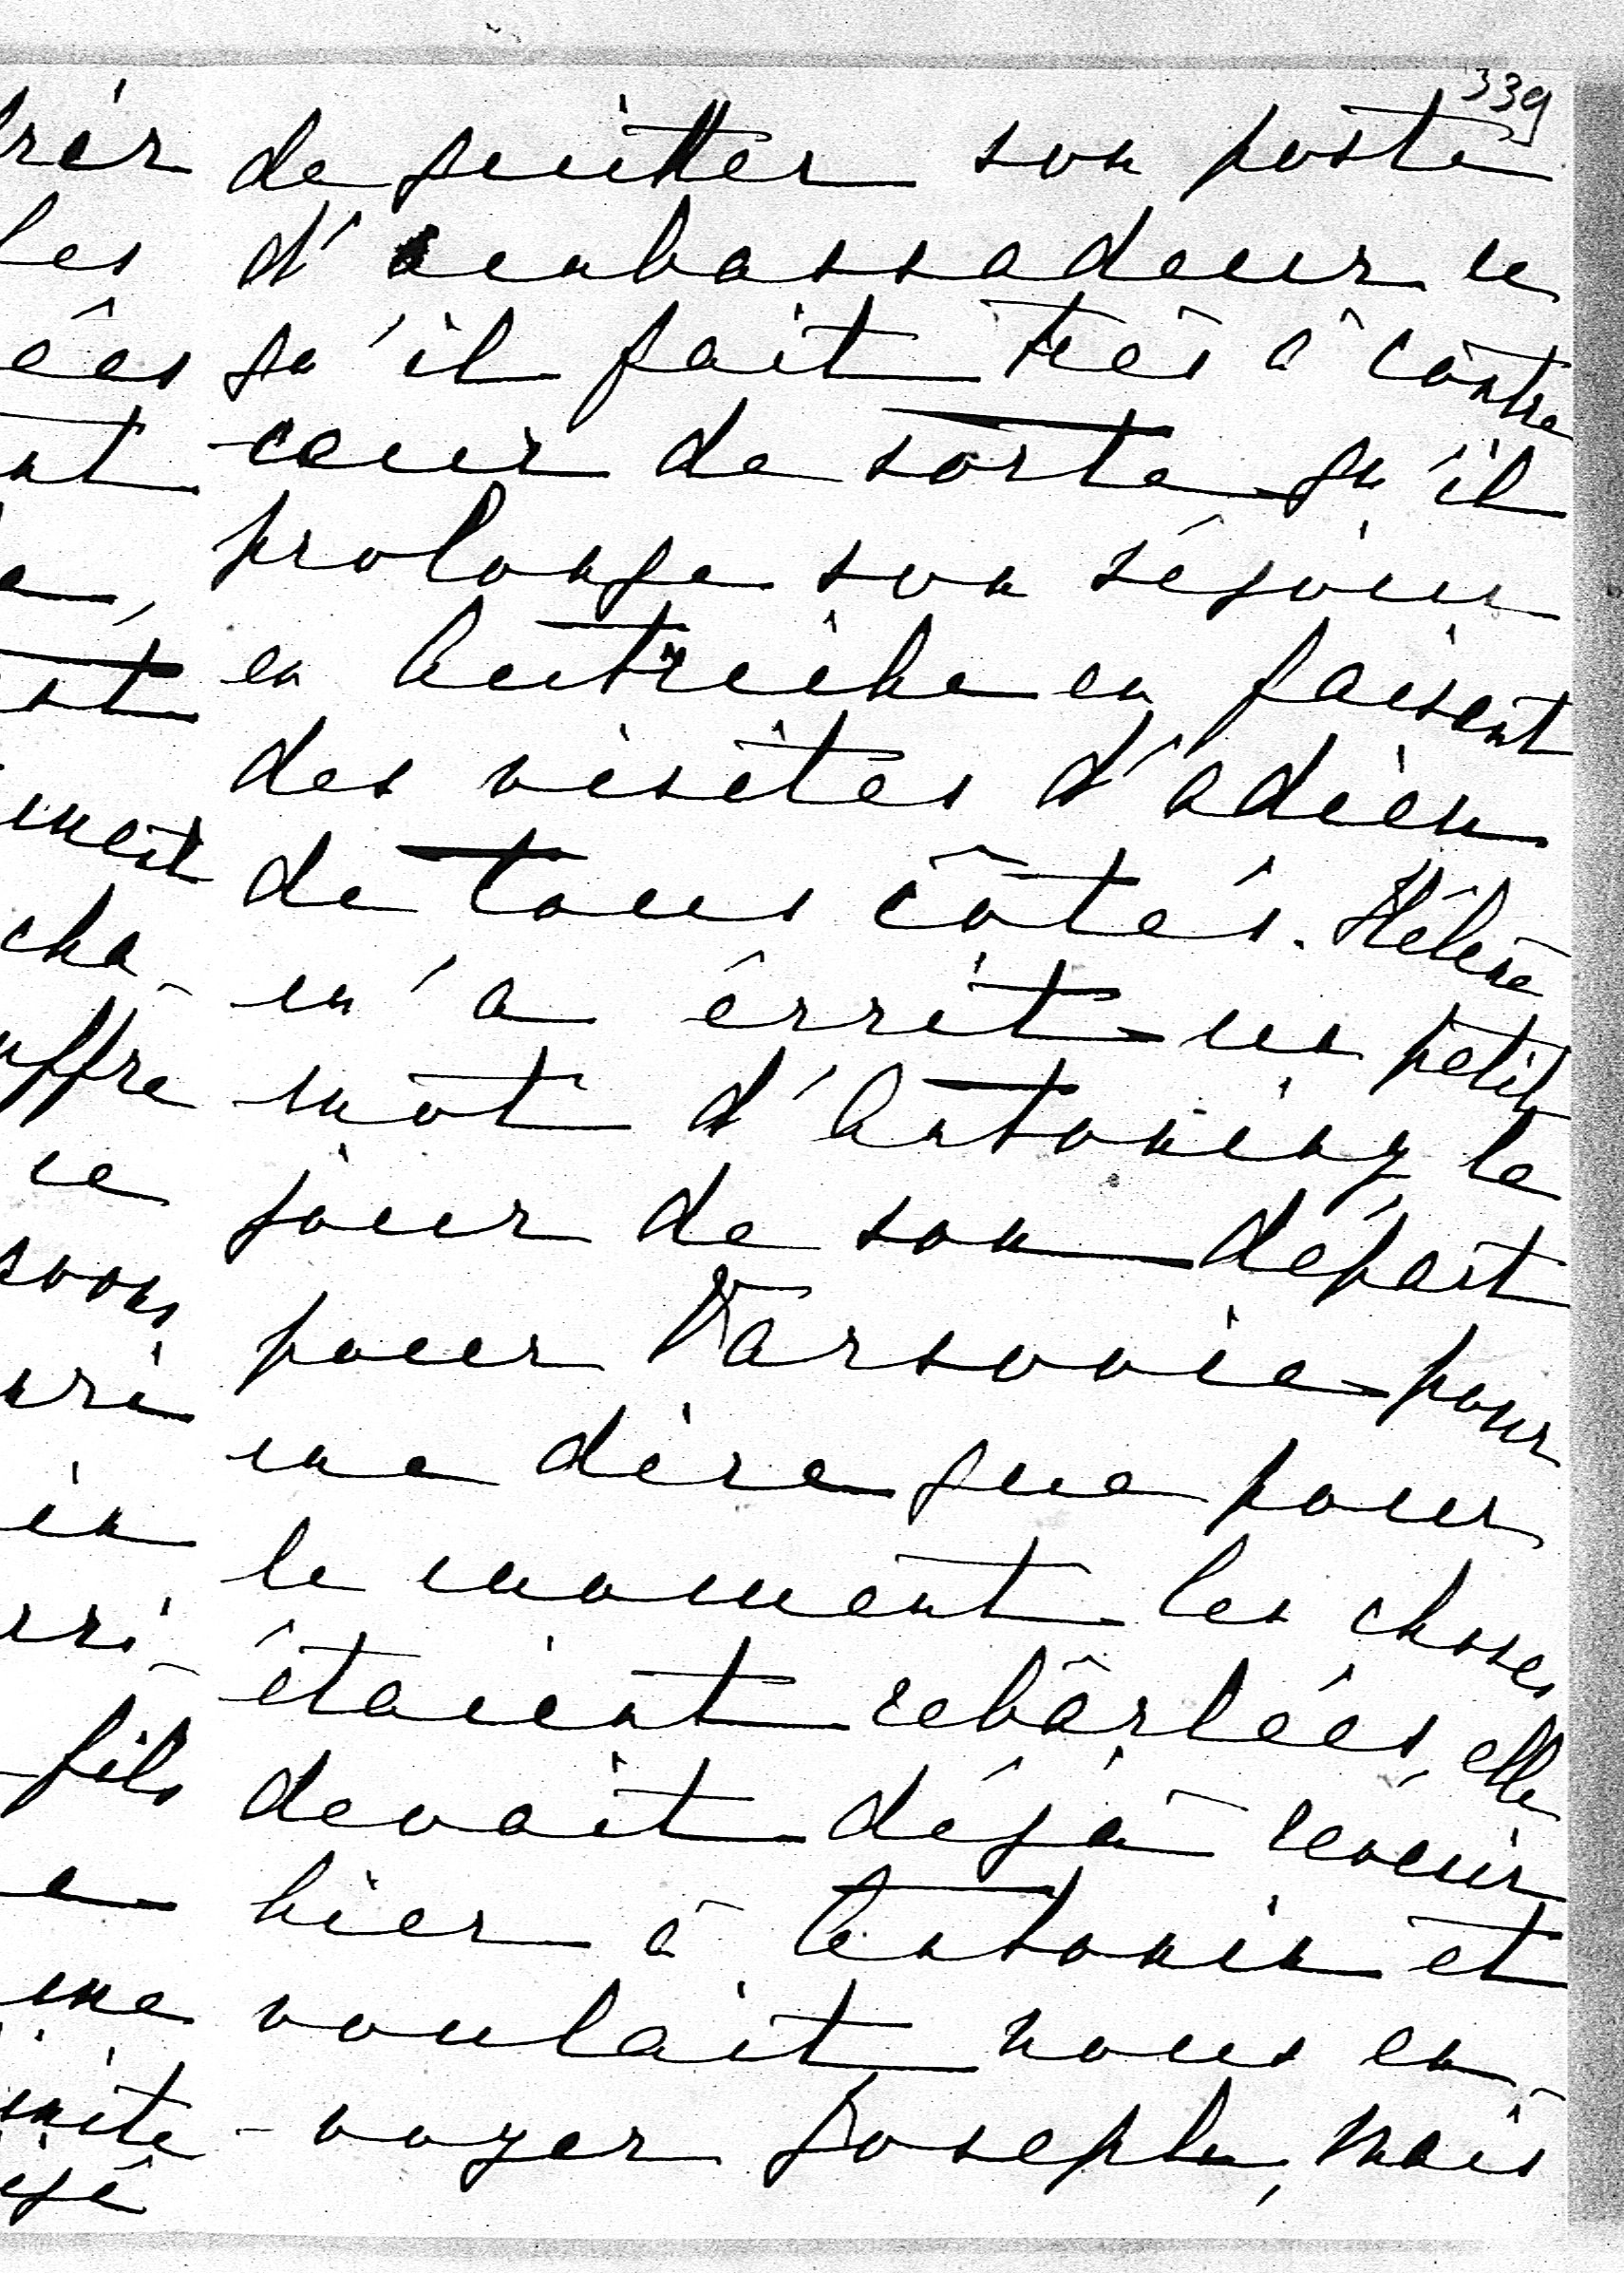 339
de quitter son poste
d'ambassadeur ce
qu'il fait très à contre
-coeur de sorte qu'il
prolonge son séjour
en Autriche en faisant
des visites d'adieu
de tous côtés. Hélène
m'a écrit un petit
mot d'Antoniny, le
jour de son départ
pour Varsovie pour
me dire que pour
le moment les choses
étaient rebâclées, elle
devait déjà revenir
hier à Antonin et
voulait nous en
-voyer Joseph, mais